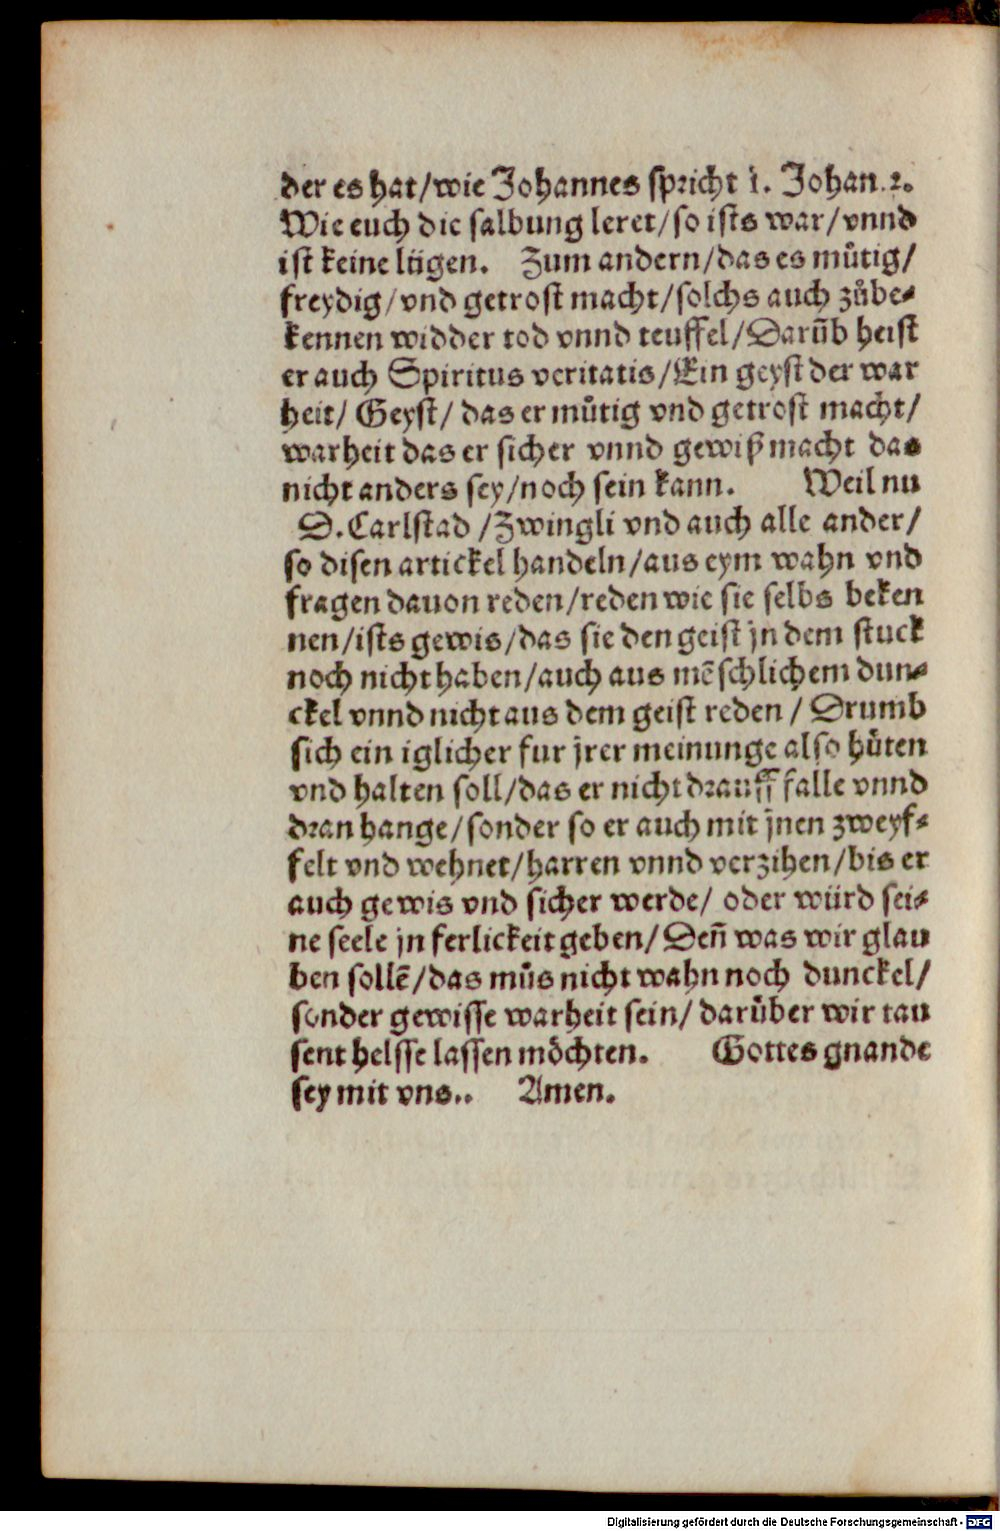 der es hat/wie Johannes spricht i. Johan.2.
Wie euch die salbung leret/so ists war/vnnd
ist keine lügen. Zum andern/das es můtig/
freydig/vnd getrost macht/solchs auch zůbe⸗
kennen widder tod vnnd teuffel/Darūb heist
er auch Spiritus veritatis/Ein geyst der war
heit/ Geyst/ das er můtig vnd getrost macht/
warheit das er sicher vnnd gewiß macht das
nicht anders sey/noch sein kann. Weil nu
D. Carlstad /Zwingli vnd auch alle ander/
so disen artickel handeln/aus eym wahn vnd
fragen dauon reden/reden wie sie selbs beken
nen/ists gewis/das sie den geist jn dem stuck
noch nicht haben/auch aus mēschlichem dun⸗
ckel vnnd nicht aus dem geist reden / Drumb
sich ein iglicher fur jrer meinunge also hůten
vnd halten soll/das er nicht drauff falle vnnd
dran hange/sonder so er auch mit jnen zweyf⸗
felt vnd wehnet/harren vnnd verzihen/bis er
auch gewis vnd sicher werde/ oder würd sei⸗
ne seele jn ferlickeit geben/Deñ was wir glau
ben sollē/das můs nicht wahn noch dunckel/
sonder gewisse warheit sein/ darůber wir tau
sent helsse lassen möchten. Gottes gnande
sey mit vns.. Amen.
Digitalisierung gefördert durch die Deutsche Forschungsgemeinschaft - DFG